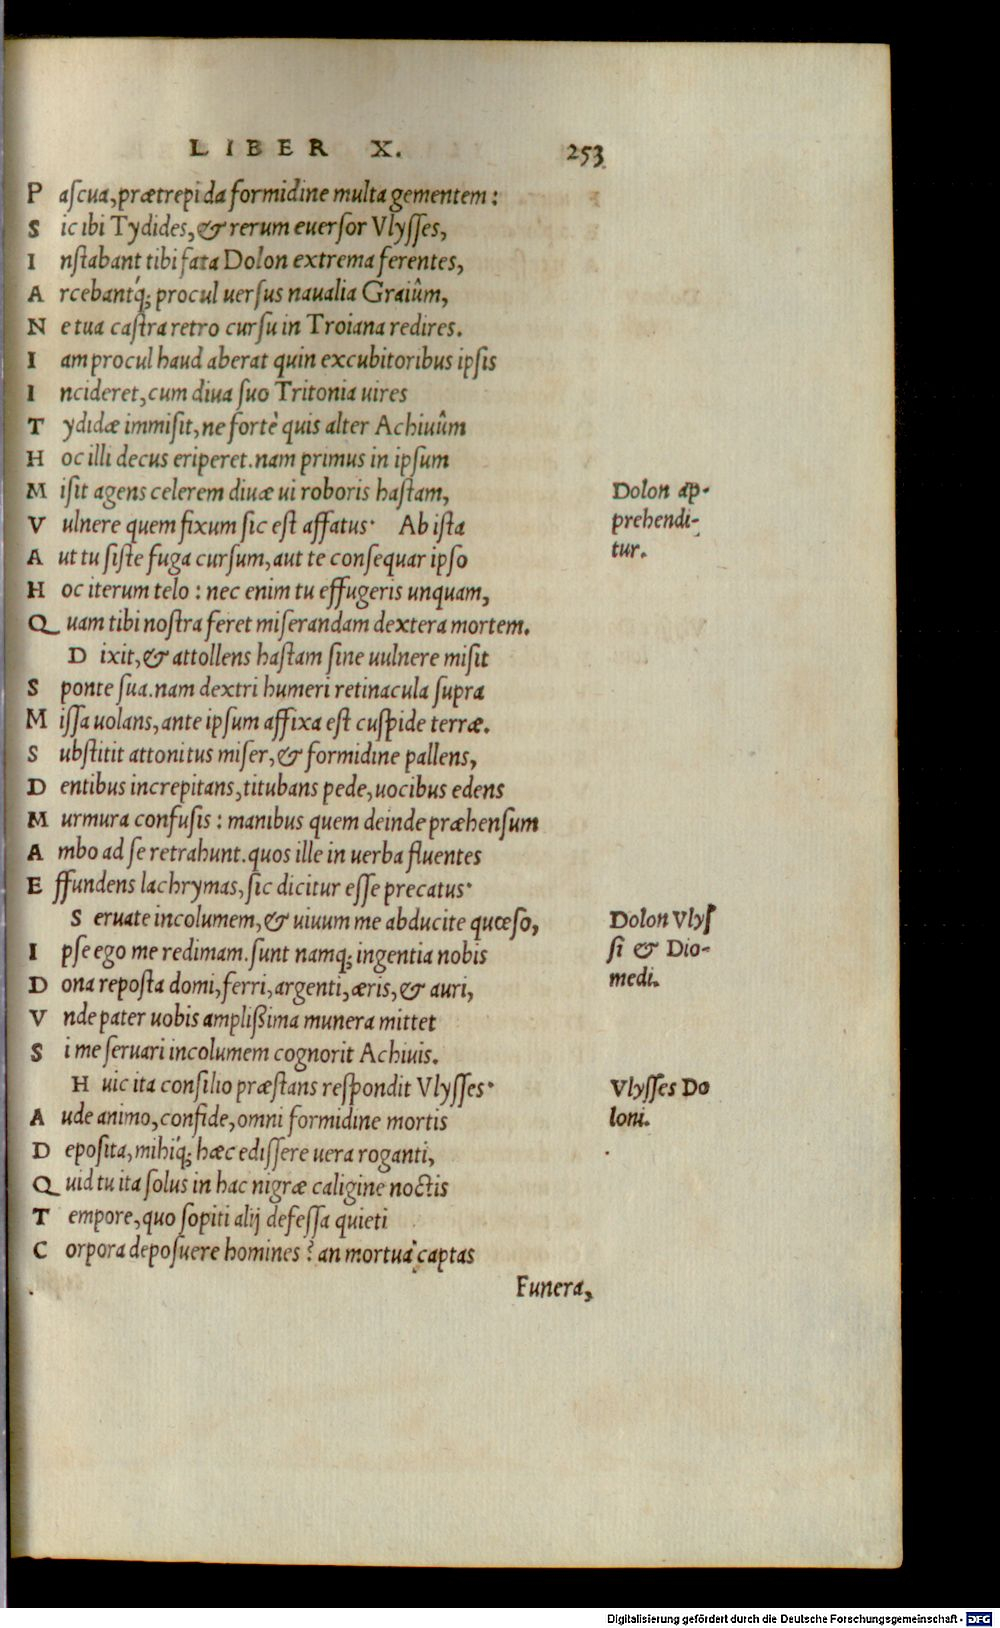 LIBER X. 253
Pascua, prætrepida formidine multa gementem:
Sic ibi Tydides, & rerum euersor Vlysses,
Instabant tibi fata Dolon extrema ferentes,
Arcebantq́; procul uersus naualia Graiûm,
Ne tua castra retro cursu in Troiana redires.
Iam procul haud aberat quin excubitoribus ipsis
Incideret, cum diua suo Tritonia uires
Tydidæ immisit, ne fortè quis alter Achiuûm
Hoc illi decus eriperet. nam primus in ipsum
Misit agens celerem diuæ ui roboris hastam,
Vulnere quem fixum sic est affatus· Ab ista
Aut tu siste fuga cursum, aut te consequar ipso
Hoc iterum telo: nec enim tu effugeris unquam,
Quam tibi nostra feret miserandam dextera mortem.
Dixit, & attollens hastam sine uulnere misit
Sponte sua. nam dextri humeri retinacula supra
Missa uolans, ante ipsum affixa est cuspide terræ.
Substitit attonitus miser, & formidine pallens,
Dentibus increpitans, titubans pede, uocibus edens
Murmura confusis: manibus quem deinde præhensum
Ambo ad se retrahunt. quos ille in uerba fluentes
Effundens lachrymas, sic dicitur esse precatus·
Seruate incolumem, & uiuum me abducite quæso,
Ipse ego me redimam. sunt namq; ingentia nobis
Dona reposta domi, ferri, argenti, æris, & auri,
Vnde pater uobis amplißima munera mittet
Si me seruari incolumem cognorit Achiuis.
Huic ita consilio præstans respondit Vlysses·
Aude animo, confide, omni formidine mortis
Deposita, mihiq́; hæc edissere uera roganti,
Quid tu ita solus in hac nigræ caligine noctis
Tempore, quo sopiti alij defessa quieti
Corpora deposuere homines? an mortua captas
Funera,
Dolon ap-
prehendi-
tur.
Dolon Vlys
si & Dio-
medi.
Vlysses Do
loni.
Digitalisierung gefördert durch die Deutsche Forschungsgemeinschaft - DFG